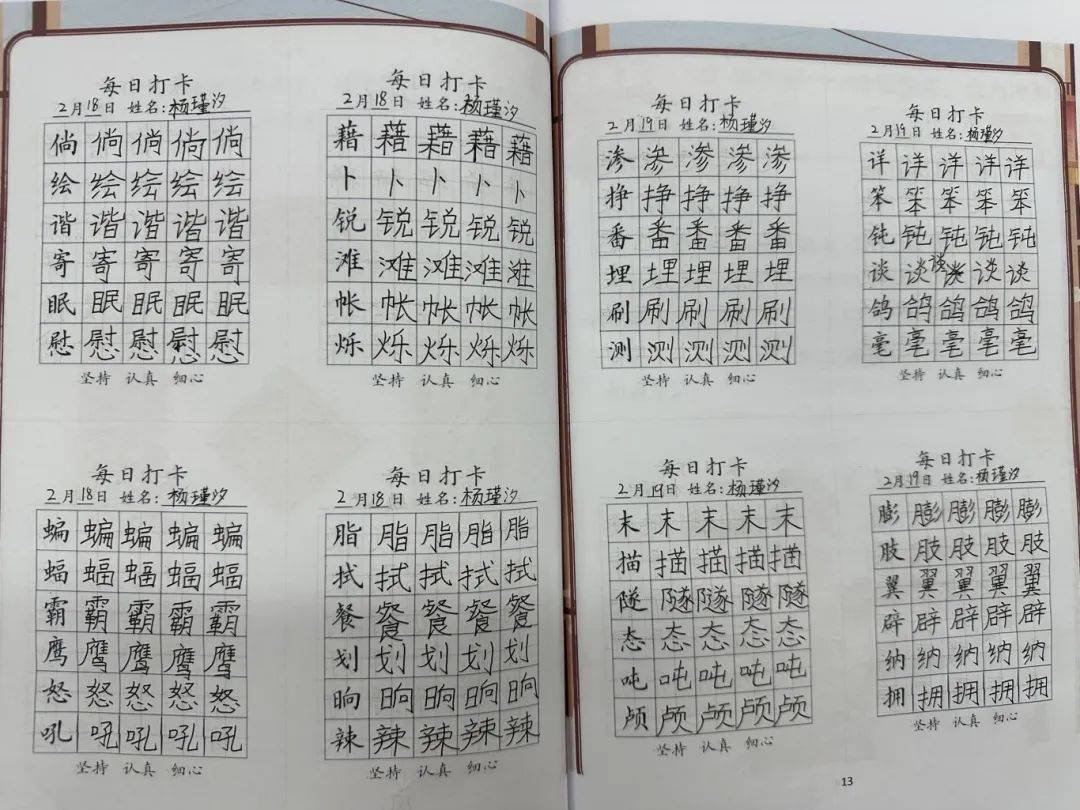 每日打卡
2月18日 姓名:杨瑾汐
倘 倘 倘 倘 倘
绘 绘 绘 绘 绘
谐 谐 谐 谐 谐
寄 寄 寄 寄 寄
眠 眠 眠 眠 眠
慰 慰 慰 慰 慰
坚持 认真 细心
每日打卡
2月18日 姓名:杨瑾汐
藉 藉 藉 藉 藉
卜 卜 卜 卜 卜
锐 锐 锐 锐 锐
滩 滩 滩 滩 滩
帐 帐 帐 帐 帐
烁 烁 烁 烁 烁
坚持 认真 细心
每日打卡
2月18日 姓名:杨瑾汐
蝙 蝙 蝙 蝙 蝙
蝠 蝠 蝠 蝠 蝠
霸 霸 霸 霸 霸
鹰 鹰 鹰 鹰 鹰
怒 怒 怒 怒 怒
吼 吼 吼 吼 吼
坚持 认真 细心
每日打卡
2月18日 姓名:杨瑾汐
脂 脂 脂 脂 脂
拭 拭 拭 拭 拭
餐 餐 餐 餐 餐
划 划 划 划 划
晌 晌 晌 晌 晌
辣 辣 辣 辣 辣
坚持 认真 细心
每日打卡
2月19日 姓名:杨瑾汐
渗 渗 渗 渗 渗
挣 挣 挣 挣 挣
番 番 番 番 番
埋 埋 埋 埋 埋
刷 刷 刷 刷 刷
测 测 测 测 测
坚持 认真 细心
每日打卡
2月19日 姓名:杨瑾汐
详 详 详 详 详
笨 笨 笨 笨 笨
钝 钝 钝 钝 钝
谈 谈 谈 谈 谈
鸽 鸽 鸽 鸽 鸽
毫 毫 毫 毫 毫
坚持 认真 细心
每日打卡
2月19日 姓名:杨瑾汐
末 末 末 末 末
描 描 描 描 描
隧 隧 隧 隧 隧
态 态 态 态 态
吨 吨 吨 吨 吨
颅 颅 颅 颅 颅
坚持 认真 细心
每日打卡
2月19日 姓名:杨瑾汐
膨 膨 膨 膨 膨
肢 肢 肢 肢 肢
翼 翼 翼 翼 翼
辟 辟 辟 辟 辟
纳 纳 纳 纳 纳
拥 拥 拥 拥 拥
坚持 认真 细心
13